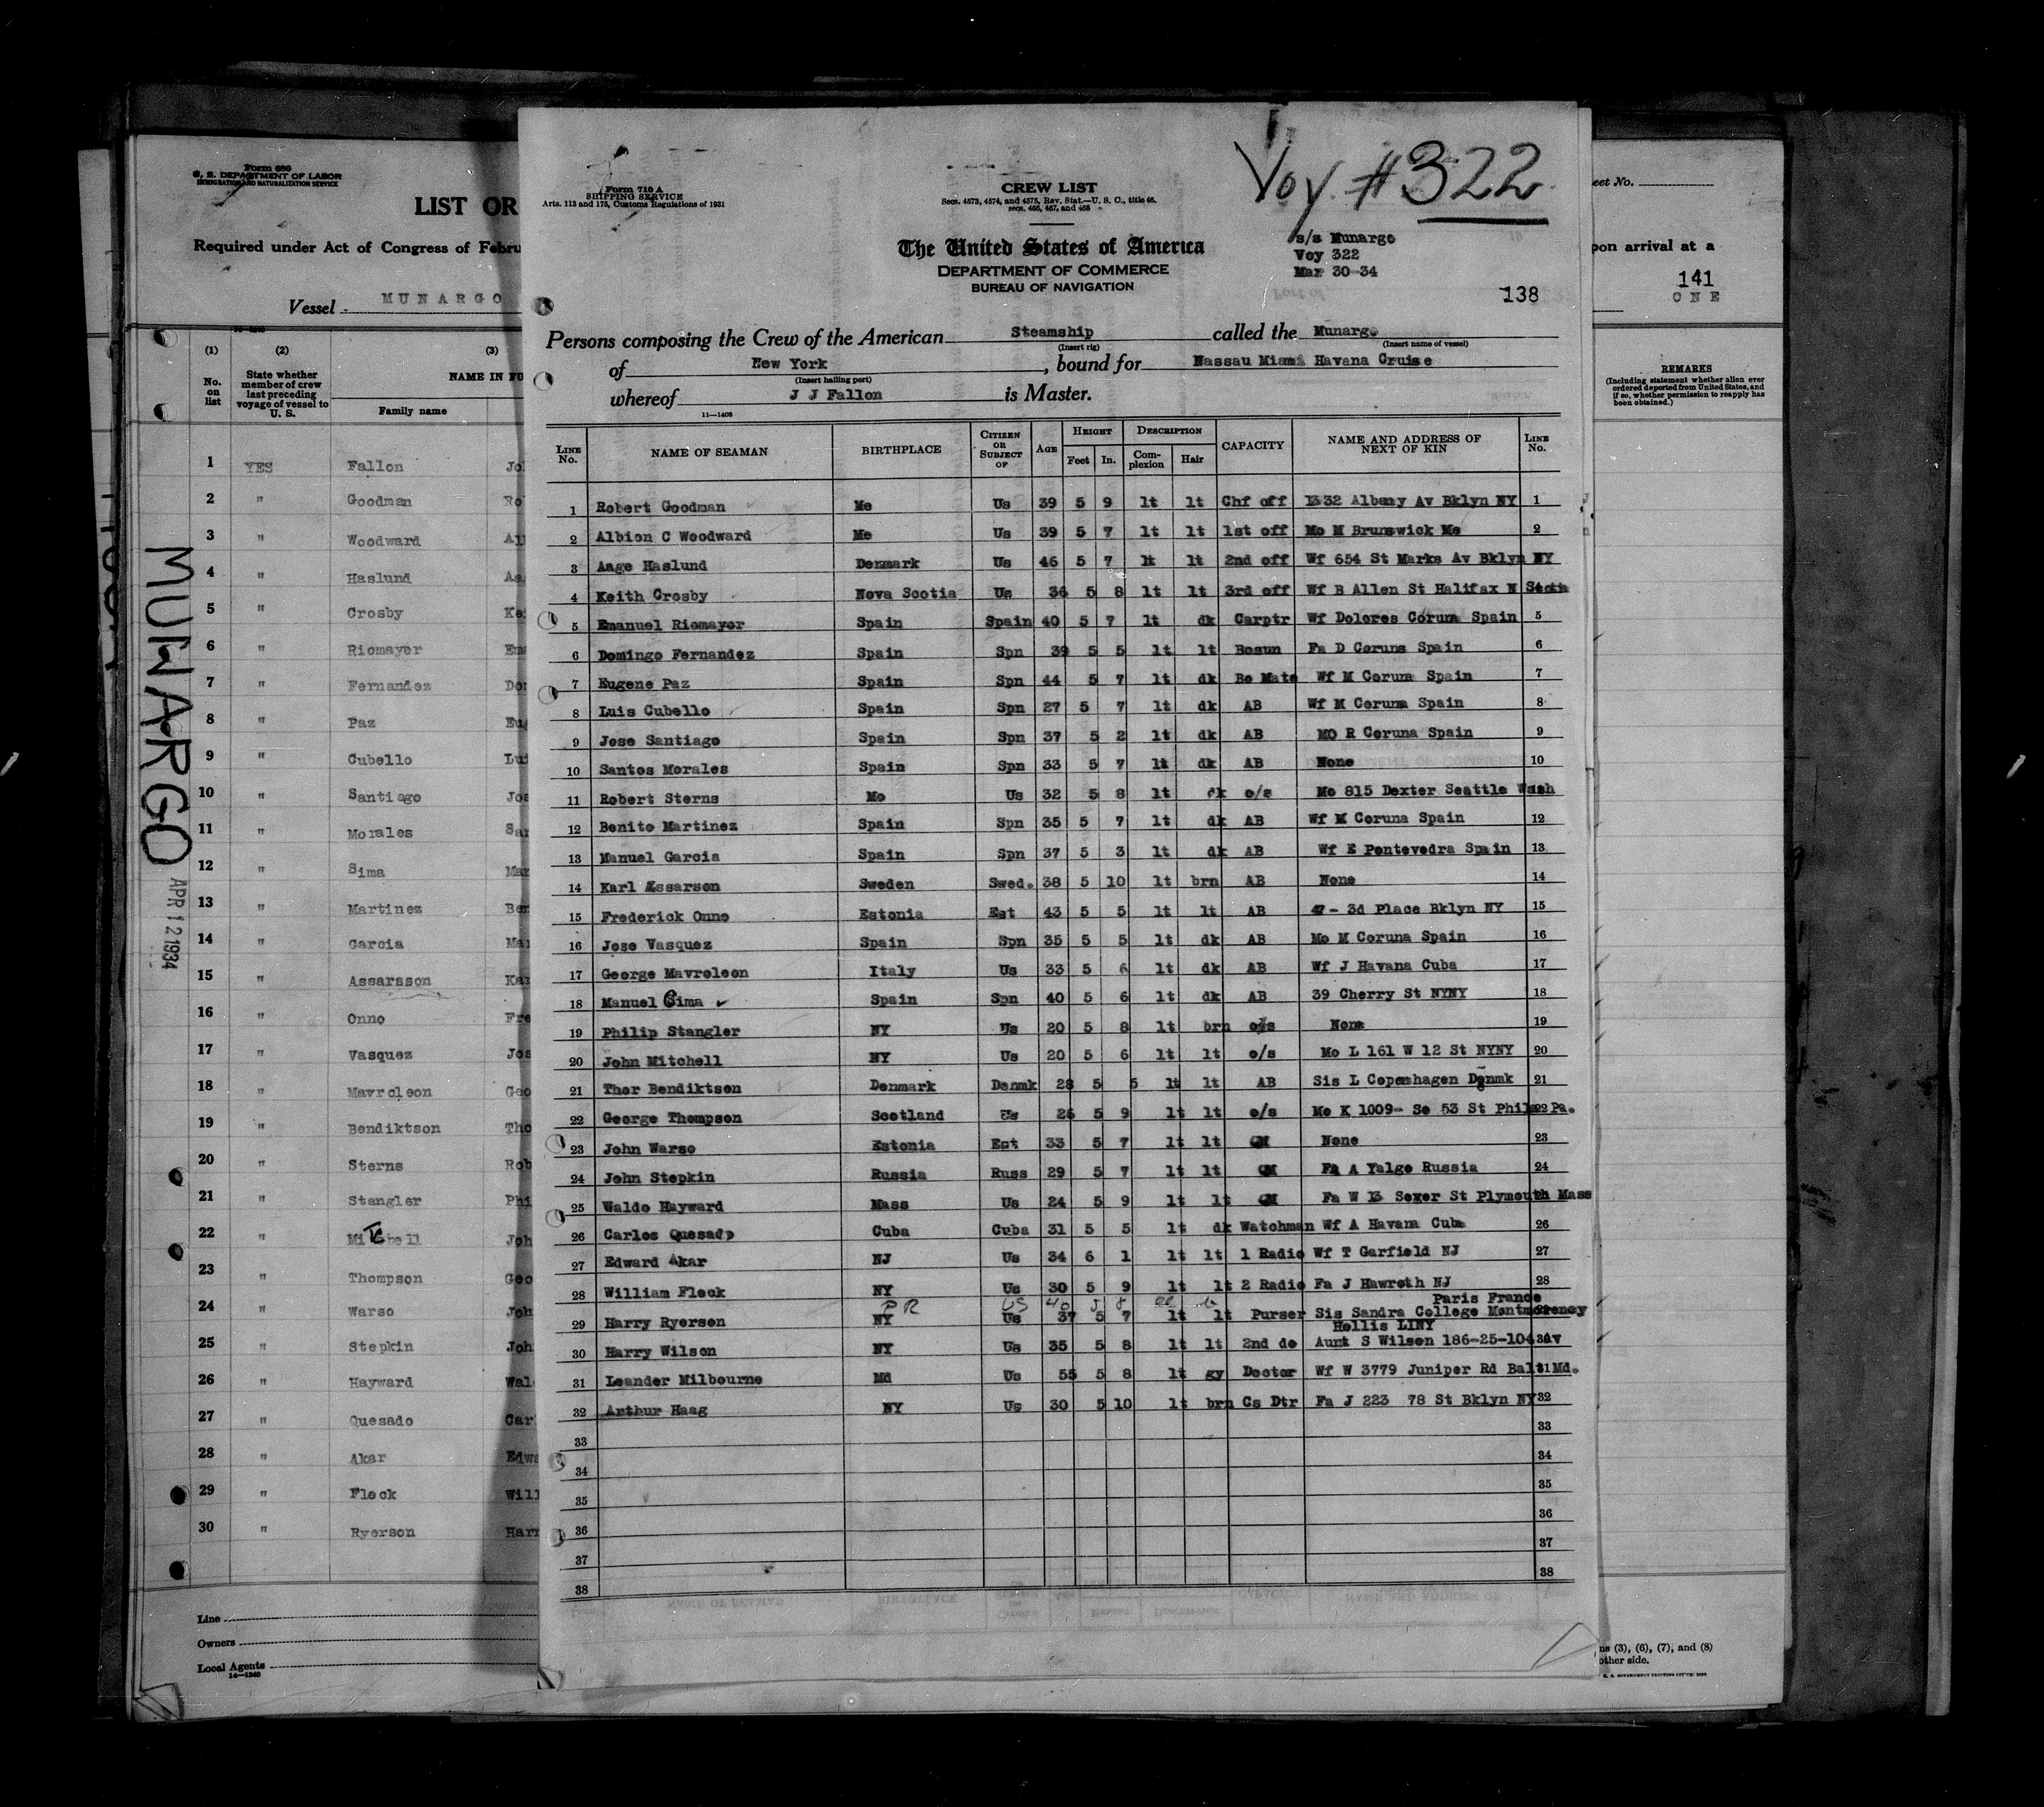 Form 680
U. S. DEPARTMENT OF LABOR
IMMIGRATION AND NATURALIZATION SERVICE
LIST OR
Required under Act of Congress of Febru
Vessel MUNARGO
(1) (2) (3)
No. on list
State whether member of crew last preceding voyage of vessel to U. S.
NAME IN FU
Family name
1 YES Fallon Jo
2 " Goodman Ro
3 " Woodward Al
4 " Haslund
5 " Crosby Ke
6 " Riomayer Em
7 " Fernandez Do
8 " Paz Eu
9 " Cubello Lui
10 " Santiago Jos
11 " Morales Sa
12 " Sima Ma
13 " Martinez Be
14 " Garcia Ma
15 " Assarsson Ka
16 " Onno Fre
17 " Vasquez Jos
18 " Mavroleon Geo
19 " Bendiktson Tho
20 " Sterns Rob
21 " Stangler Phi
22 " Mitchell Joh
23 " Thompson Geo
24 " Warso Joh
25 " Stepkin Joh
26 " Hayward Wal
27 " Quesado Car
28 " Akar Edw
29 " Fleck Will
30 " Ryerson Harr
Line
Owners
Local Agents
14—1240
MUNARGO
APR 12 1934
Form 710 A
SHIPPING SERVICE
Arts. 113 and 175, Customs Regulations of 1931
CREW LIST
Secs. 4573, 4574, and 4575, Rev. Stat.—U. S. C., title 46, secs. 466, 467, and 468
Voy. #322
The United States of America
DEPARTMENT OF COMMERCE
BUREAU OF NAVIGATION
s/s Munargo
Voy 322
Mar 30-34
138
Persons composing the Crew of the American Steamship called the Munargo
(Insert rig) (Insert name of vessel)
of New York, bound for Nassau Miami Havana Cruise
(Insert hailing port)
whereof J J Fallon is Master.
11—1408
LINE No. NAME OF SEAMAN BIRTHPLACE CITIZEN OR SUBJECT OF AGE HEIGHT Feet In. DESCRIPTION Complexion Hair CAPACITY NAME AND ADDRESS OF NEXT OF KIN LINE No.
1 Robert Goodman Me Us 39 5 9 lt lt Chf off 1332 Albany Av Bklyn NY 1
2 Albion C Woodward Me Us 39 5 7 lt lt 1st off Mo M Brunswick Me 2
3 Aage Haslund Denmark Us 46 5 7 lt lt 2nd off Wf 654 St Marks Av Bklyn NY
4 Keith Crosby Nova Scotia Us 36 5 8 lt lt 3rd off Wf B Allen St Halifax N Scotia
5 Emanuel Riomayor Spain Spain 40 5 7 lt dk Carptr Wf Dolores Coruna Spain 5
6 Domingo Fernandez Spain Spn 39 5 5 lt lt Bosun Fa D Coruna Spain 6
7 Eugene Paz Spain Spn 44 5 7 lt dk Bo Mate Wf M Coruna Spain 7
8 Luis Cubello Spain Spn 27 5 7 lt dk AB Wf M Coruna Spain 8
9 Jose Santiago Spain Spn 37 5 2 lt dk AB MO R Coruna Spain 9
10 Santos Morales Spain Spn 33 5 7 lt dk AB None 10
11 Robert Sterns Mo Us 32 5 8 lt dk o/s Mo 815 Dexter Seattle Wash
12 Benito Martinez Spain Spn 35 5 7 lt dk AB Wf M Coruna Spain 12
13 Manuel Garcia Spain Spn 37 5 3 lt dk AB Wf E Pontevedra Spain 13
14 Karl Assarson Sweden Swed. 38 5 10 lt brn AB None 14
15 Frederick Onno Estonia Est 43 5 5 lt lt AB 47- 3d Place Bklyn NY 15
16 Jose Vasquez Spain Spn 35 5 5 lt dk AB Mo M Coruna Spain 16
17 George Mavroleon Italy Us 33 5 6 lt dk AB Wf J Havana Cuba 17
18 Manuel Cima ✓ Spain Spn 40 5 6 lt dk AB 39 Cherry St NYNY 18
19 Philip Stangler NY Us 20 5 8 lt brn o/s None 19
20 John Mitchell NY Us 20 5 6 lt lt o/s Mo L 161 W 12 St NYNY 20
21 Thor Bendiktson Denmark Danmk 28 5 5 lt lt AB Sis L Copenhagen Denmk 21
22 George Thompson Scotland Us 26 5 9 lt lt o/s Mo K 1009- So 53 St Phila Pa. 22
23 John Warso Estonia Est 33 5 7 lt lt QM None 23
24 John Stepkin Russia Russ 29 5 7 lt lt QM Fa A Yalge Russia 24
25 Waldo Hayward Mass Us 24 5 9 lt lt QM Fa W 13 Soxer St Plymouth Mass
26 Carlos Quesado Cuba Cuba 31 5 5 lt dk Watchman Wf A Havana Cuba 26
27 Edward Akar NJ Us 34 6 1 lt lt 1 Radio Wf T Garfield NJ 27
28 William Fleck NY Us 30 5 9 lt lt 2 Radio Fa J Haworth NJ 28
PR US 40 5 8 Paris France
29 Harry Ryerson NY Us 37 5 7 lt lt Purser Sis Sandra College Montmorency
Hollis LINY
30 Harry Wilson NY Us 35 5 8 lt lt 2nd do Aunt S Wilson 186-25-104 Av 30
31 Leander Milbourne Md Us 55 5 8 lt gy Doctor Wf W 3779 Juniper Rd Balt Md. 31
32 Arthur Haag NY Us 30 5 10 lt brn Cs Dtr Fa J 223 78 St Bklyn NY 32
33 33
34 34
35 35
36 36
37 37
38 38
eet No.
pon arrival at a
141
ONE
REMARKS
(Including statement whether alien ever ordered deported from United States, and if so, whether permission to reapply has been obtained.)
ns (3), (6), (7), and (8)
other side.
U. S. GOVERNMENT PRINTING OFFICE: 1932